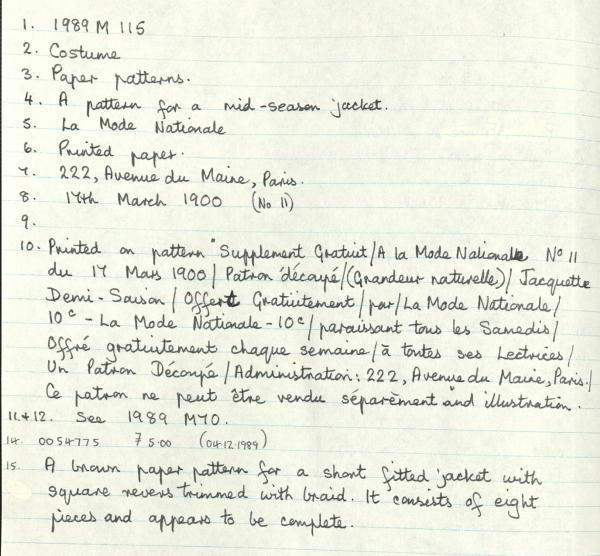 1. 1989 M 115
2. Costume
3. Paper patterns.
4. A pattern for a mid-season jacket.
5. La Mode Nationale
6. Printed paper.
7. 222, Avenue du Maine, Paris.
8. 17th March 1900 (No 11)
9.
10. Printed on pattern "Supplement Gratuit/A la Mode Nationale No 11
du 17 Mars 1900/Patron découpé/(Grandeur naturelle)/Jacquette
Demi-Saison/Offert Gratuitement/par/La Mode Nationale/
10c - La Mode Nationale - 10c/paraissant tous les Samedis/
Offré gratuitement chaque semaine/à toutes ses Lectrices/
Un Patron Découpé/Administration: 222, Avenue du Maine, Paris./
Ce patron ne peut être vendu séparèment and illustration.
11.+12. See 1989 M70.
14. 0054775 75.00 (04.12.1989)
15. A brown paper pattern for a short fitted jacket with
square revers trimmed with braid. It consists of eight
pieces and appears to be complete.